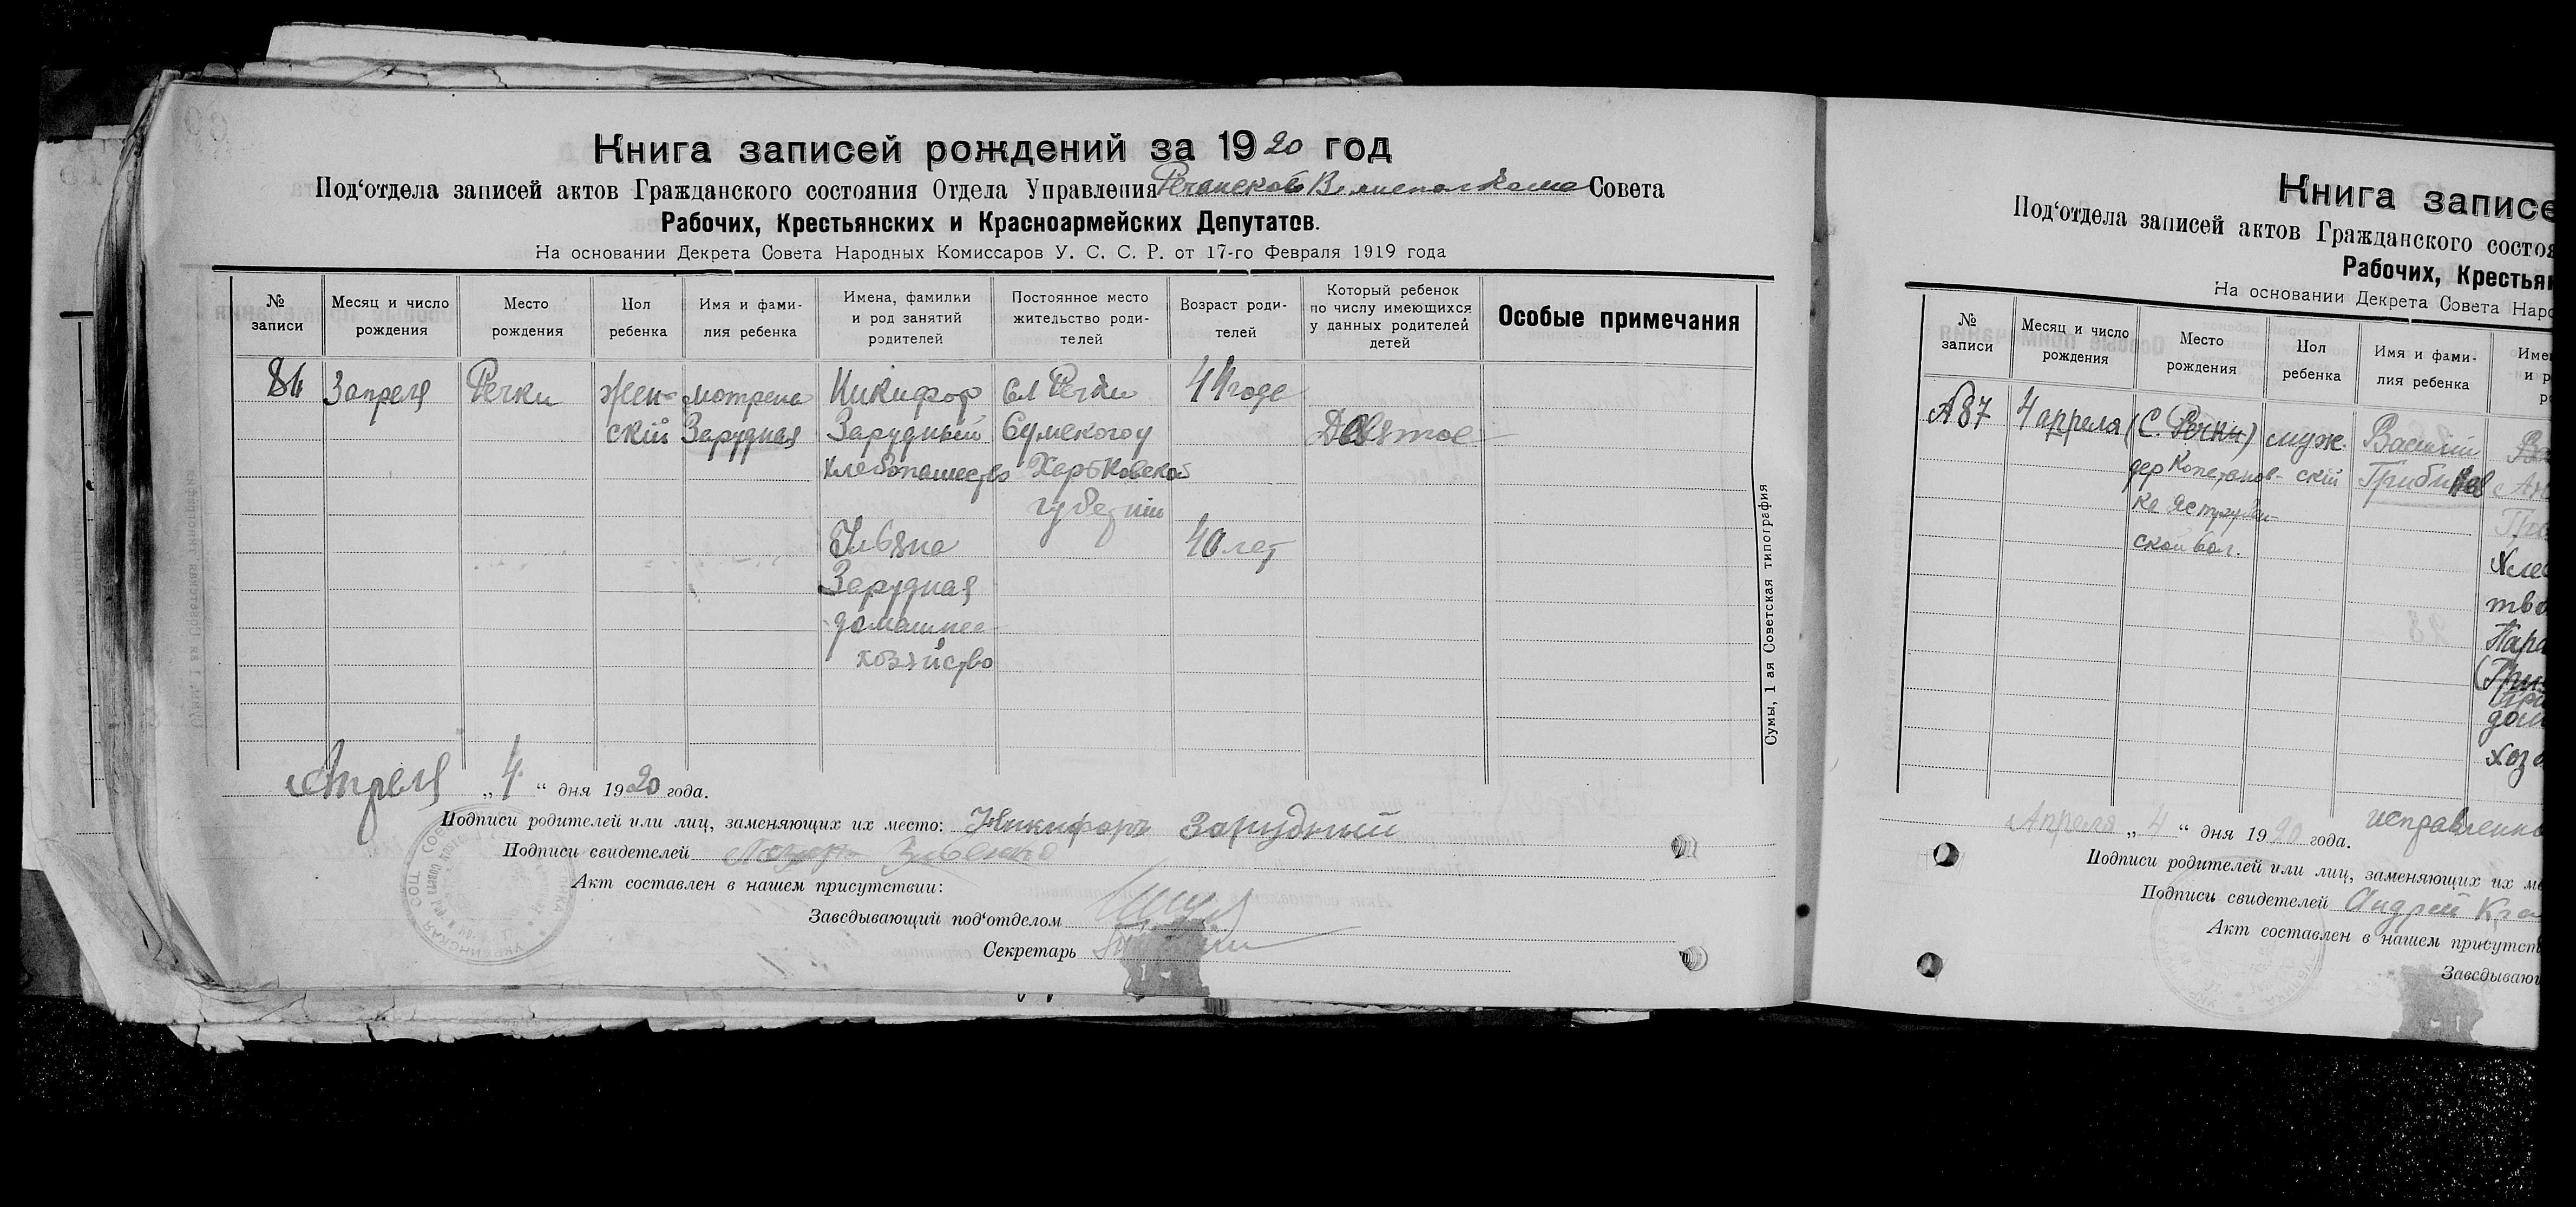 Книга записей рождений за 1920 год
Под‘отдела записей актов Гражданского состояния Отдела Управления Речанского Волисполкома Совета
Рабочих, Крестьянских и Красноармейских Депутатов.
На основании Декрета Совета Народных Комиссаров У. С. С. Р. от 17-го Февраля 1919 года
№ записи
Месяц и число рождения
Место рождения
Пол ребенка
Имя и фами-
лия ребенка
Имена, фамилии
и род занятий
родителей
Постоянное место
жительство роди-
телей
Возраст роди-
телей
Который ребенок
по числу имеющихся
у данных родителей
детей
Особые примечания
86
3 апреля
Речки
жен-
скій
мотрена
Зарудная
Никифор
Зарудный
хлебопашество
Ульяна
Зарудная
домашнее
хозяйство
сл Речки
Сумского у
Харьковской
губерніи
44 года
40 лет
Девятое
Апреля „ 4 “ дня 1920 года.
Подписи родителей или лиц, заменяющих их место: Никифоръ Зарудний
Подписи свидетелей
Акт составлен в нашем присутствии:
Заведывающий под‘отделом
Секретарь
Сумы, 1 ая Советская типография
Книга записе
Под‘отдела записей актов Гражданского состоя
Рабочих, Крестьян
На основании Декрета Совета Наро
№ записи
Месяц и число
рождения
Место
рождения
Пол
ребенка
Имя и фами-
лия ребенка
Име
и р
ро
№ 87
4 апреля
(С. Речки)
дер
ской вол.
муж-
скій
Василій
Хлеб
тво
Пара
дом
хозя
Апреля „ 4 “ дня 1920 года.
исправленно
Подписи родителей или лиц, заменяющих их ме
Подписи свидетелей Андрей Кра
Акт составлен в нашем присутст
Заведываю